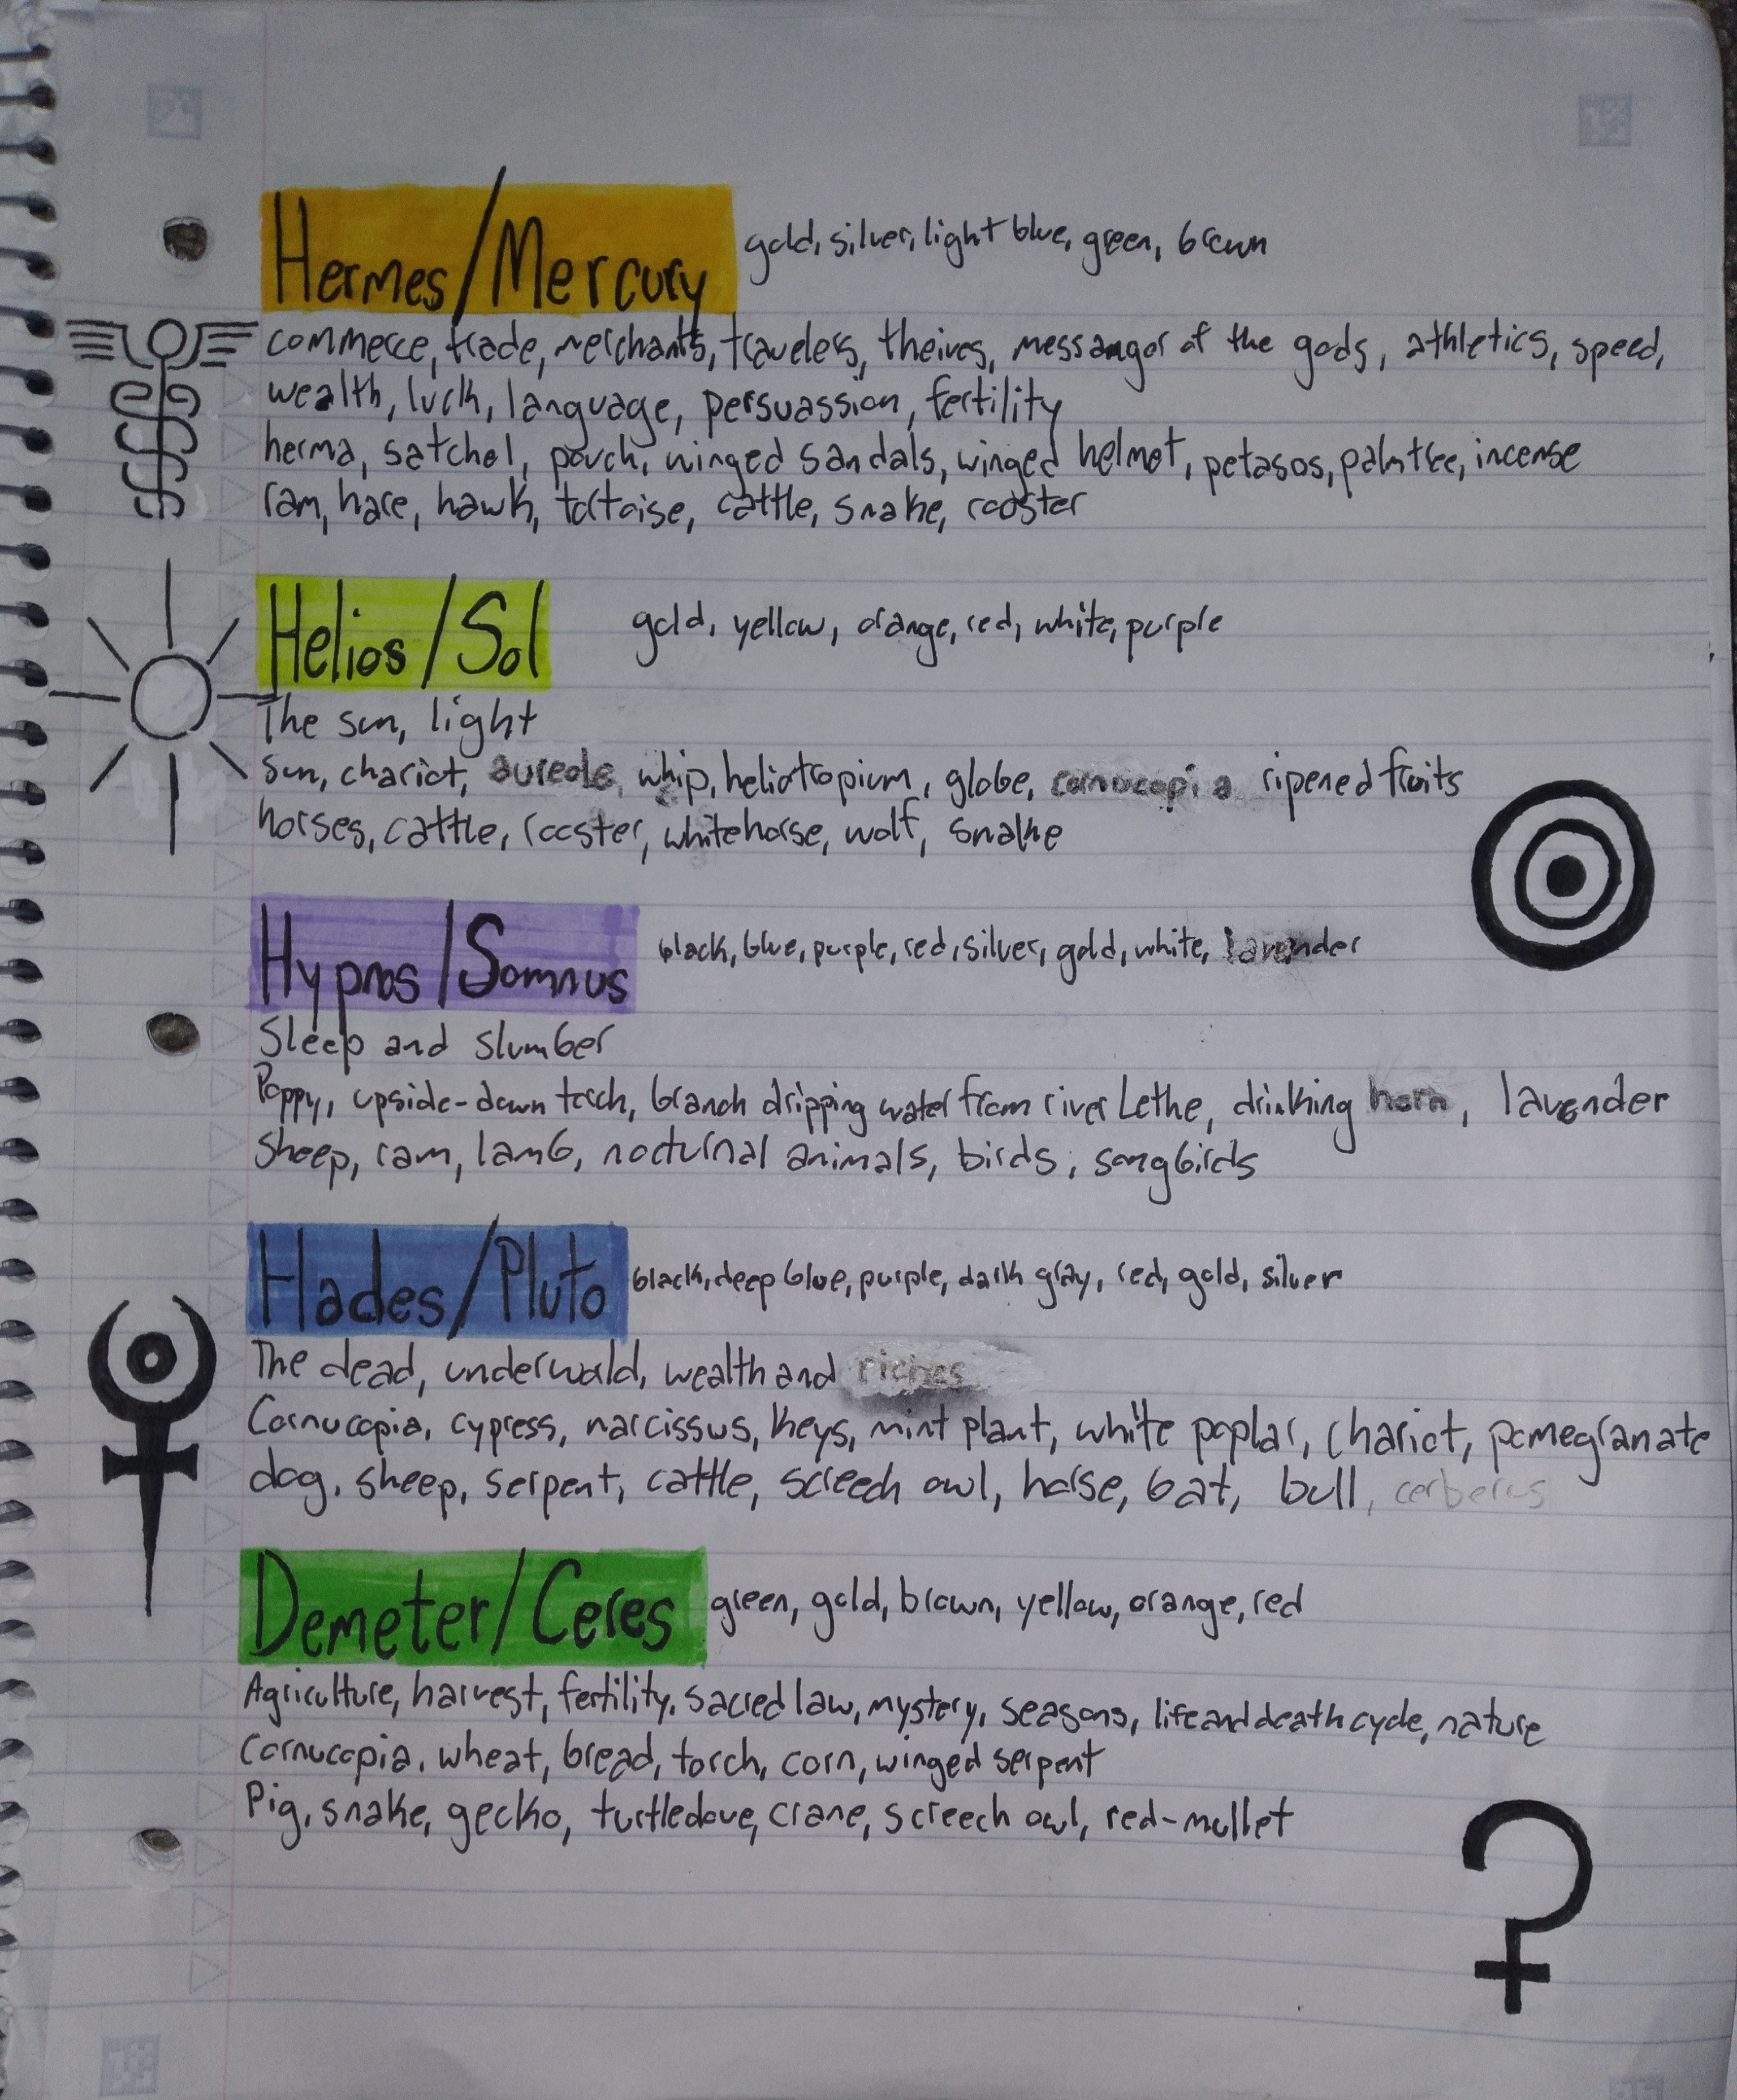 Hermes/Mercury gold, silver, light blue, green, brown
commerce, trade, merchants, travelers, theives, messangor of the gods, athletics, speed,
wealth, luck, language, persuassion, fertility
herma, satchel, pouch, winged sandals, winged helmet, petasos, palmtree, incense
ram, hare, hawk, tortoise, cattle, snake, rooster
Helios/Sol gold, yellow, orange, red, white, purple
The sun, light
sun, chariot, aureole, whip, heliotropium, globe, cornucopia ripened fruits
horses, cattle, rooster, white horse, wolf, snake
Hypnos/Somnus black, blue, purple, red, silver, gold, white, lavender
Sleep and slumber
Poppy, upside-down torch, branch dripping water from river Lethe, drinking horn, lavender
Sheep, ram, lamb, nocturnal animals, birds, songbirds
Hades/Pluto black, deep blue, purple, dark gray, red, gold, silver
The dead, underworld, wealth and riches
Cornucopia, cypress, narcissus, keys, mint plant, white poplar, chariot, pomegranate
dog, sheep, serpent, cattle, screech owl, horse, bat, bull, cerberus
Demeter/Ceres green, gold, brown, yellow, orange, red
Agriculture, harvest, fertility, sacred law, mystery, seasons, life and death cycle, nature
Cornucopia, wheat, bread, torch, corn, winged serpent
Pig, snake, gecko, turtledove, crane, screech owl, red-mullet